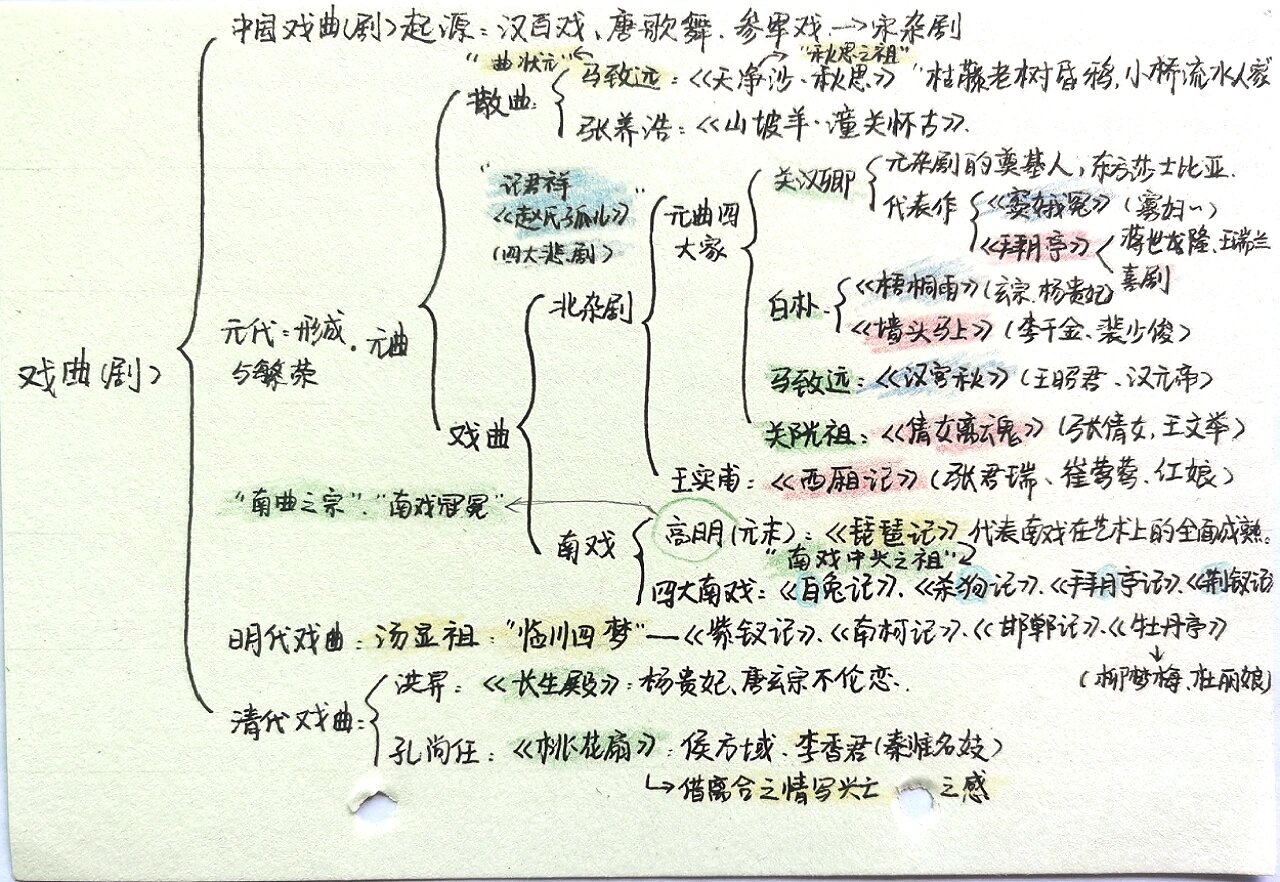 中国戏曲(剧)起源：汉百戏、唐歌舞、参军戏→宋杂剧
"曲状元" "秋思之祖"
散曲： 马致远：《天净沙·秋思》"枯藤老树昏鸦，小桥流水人家
张养浩：《山坡羊·潼关怀古》.
"记君祥
《赵氏孤儿》"
(四大悲剧)
元曲四
大家
关汉卿 元杂剧的奠基人，东方莎士比亚.
代表作 《窦娥冤》(寡妇~)
《拜月亭》 蒋世隆、王瑞兰
喜剧
北杂剧
白朴. 《梧桐雨》(玄宗、杨贵妃)
《墙头马上》(李千金、裴少俊)
元代：形成
与繁荣 . 元曲
戏曲(剧)
马致远：《汉宫秋》(王昭君、汉元帝)
戏曲
关阮祖：《倩女离魂》(张倩女，王文举)
王实甫：《西厢记》(张君瑞、崔莺莺、红娘)
"南曲之宗"."南戏冠冕"
南戏 高明(元末)：《琵琶记》代表南戏在艺术上的全面成熟。
"南戏中兴之祖"
四大南戏：《白兔记》、《杀狗记》、《拜月亭记》、《荆钗记》
明代戏曲：汤显祖："临川四梦"—《紫钗记》、《南柯记》、《邯郸记》、《牡丹亭》
(柳梦梅、杜丽娘)
清代戏曲： 洪昇：《长生殿》：杨贵妃、唐玄宗不伦恋.
孔尚任：《桃花扇》：侯方域、李香君(秦淮名妓)
↳借离合之情写兴亡 之感